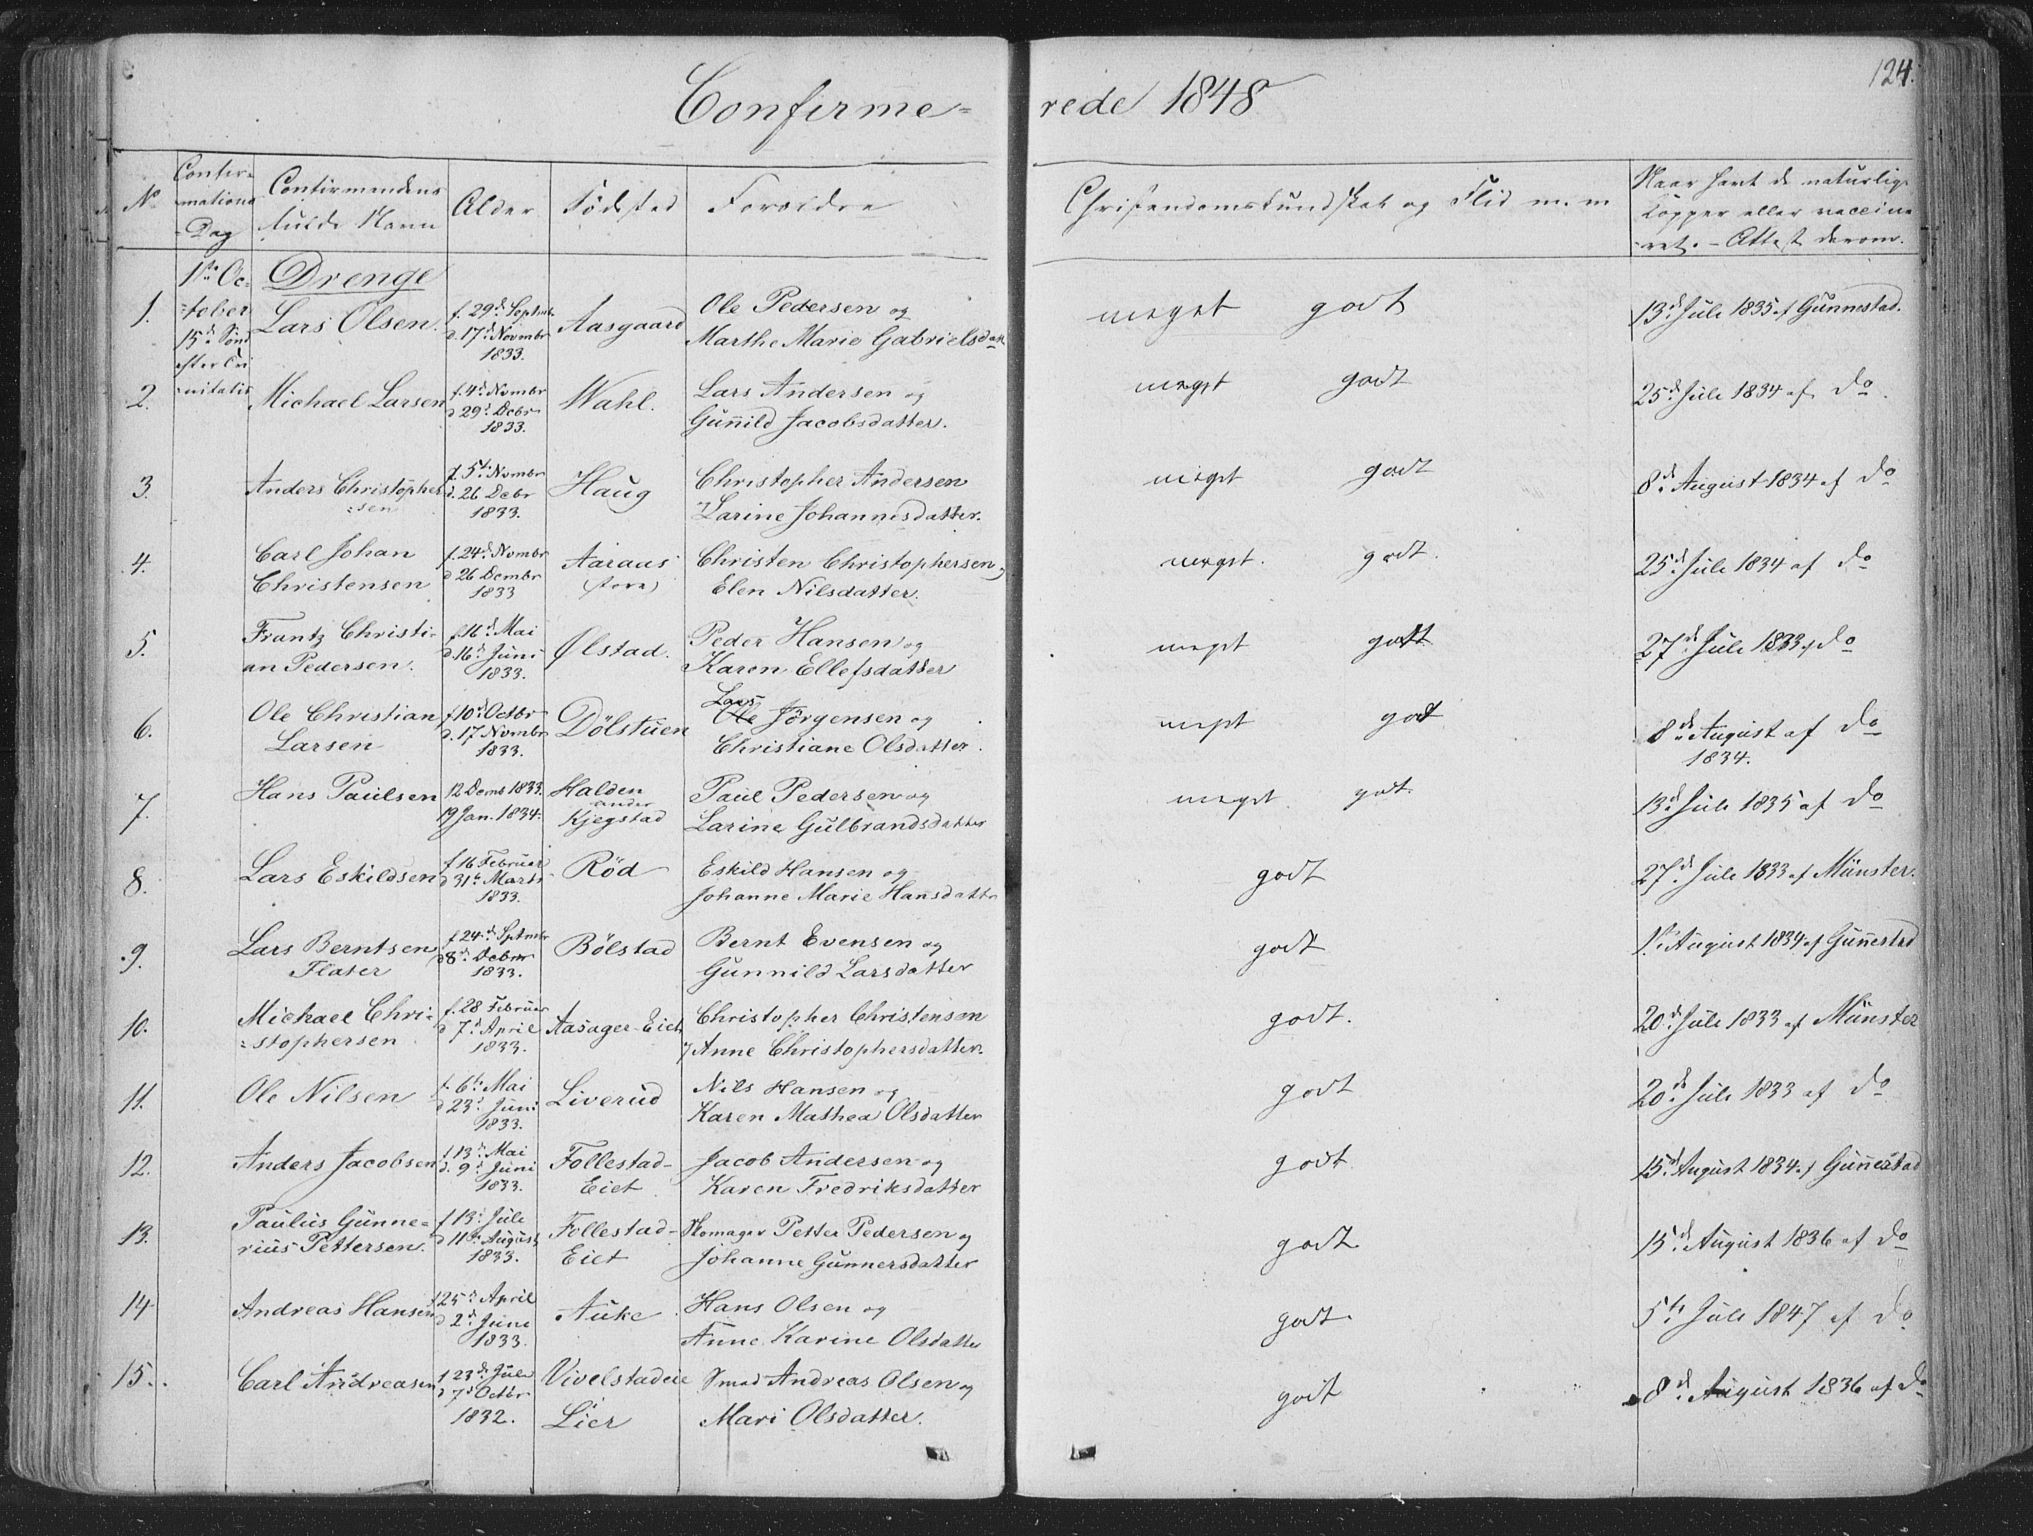 124.
Confirme-
rede 1848
No
Confir-
mations
-Dag
Confirmandens
fulde Navn
Alder
Födsted
Forældre
Christendomskundskab og Flid m. m
Naar havt de naturlige
Kopper eller vaccine-
-ret. - Attest derom.
1ste Oc-
-tober
15de Sönd
efter Tri
-nitatis
Drenge
1. Lars Olsen. f. 29d Septmbr Aasgaard Ole Pedersen og meget godt 13d Juli 1835 af Gunnestad.
d. 17d Novmbr Marthe Marie Gabrielsdatt
1833.
2. Michael Larsen f. 4d Novmbr Wahl. Lars Andersen og meget godt 25d Juli 1834 af do.
d 29d Decbr Gunnild Jacobsdatter.
1833.
3. Anders Christopher f. 5te Novmbr Haug Christopher Andersen meget godt 8de August 1834 af do
=sen d. 26 Decbr Larine Johannesdatter.
1833.
4. Carl Johan f. 24d Novmbr Aaraas Christen Christophersen meget. godt. 25d Juli 1834 af do
Christensen d 26 Decmbr Elen Nilsdatter.
1833
5. Frantz Christi- f. 16d Mai Ølstad. Peder Hansen og meget godt 27de Juli 1833 af do
an Pedersen. d. 16d Juni Karen Ellefsdatter
1833.
Lars
6. Ole Christian f. 10d Octbr Dölstuen Ole Jörgensen og meget godt 8de August af do
Larsen d. 17 Novmbr Christiane Olsdatter. 1834.
1833.
7. Hans Paulsen 12 Decmb 1833. Halden Paul Pedersen og meget godt. 13d Juli 1835 af do
under
19 Jan. 1834. Kjegstad Larine Gulbrandsdatter
8. Lars Eskildsen f 16 Februar Röd Eskild Hansen og godt 27de Juli 1833 af Münster.
d 31te Marts Johanne Marie Hansdatter
1833.
9. Lars Berntsen f 24d Septmbr Bölstad Bernt Evensen og godt 1ste August 1834 af Gunnestad
Flater d 8d Decbr Gunnild Larsdatter
1833.
10. Michael Chri- f. 28 Februar Aasager-Eiet Christopher Christensen godt. 20d Juli 1833 af Münster
=stophersen d 7d April og Anne Christophersdatter.
1833.
11. Ole Nilsen f. 6te Mai Liverud Nils Hansen og godt 20de Juli 1833 af do
d 23d Juni Karen Mathea Olsdatter
1833.
12. Anders Jacobsen f 13d Mai Follestad- Jacob Andersen og godt. 15d August 1834 af Gunnestad
d. 9d Juni Eiet Karen Fredriksdatter
1833.
13. Paulus Gunne- f 13d Juli Follestad- Skomager Petter Pedersen og godt 15d August 1836 af do
rius Pettersen. d 11te August Eiet Johanne Gunnersdatter
1833.
14 Andreas Hansen f 25d April Auke Hans Olsen og godt. 5te Juli 1847 af do
d 2d Juni Anne Karine Olsdatter
1833.
15. Carl Andreasen f 23d Juli Vivelstadeie Smed Andreas Olsen og godt 8d August 1836 af do
d 7d Octbr Lier Mari Olsdatter.
1832.